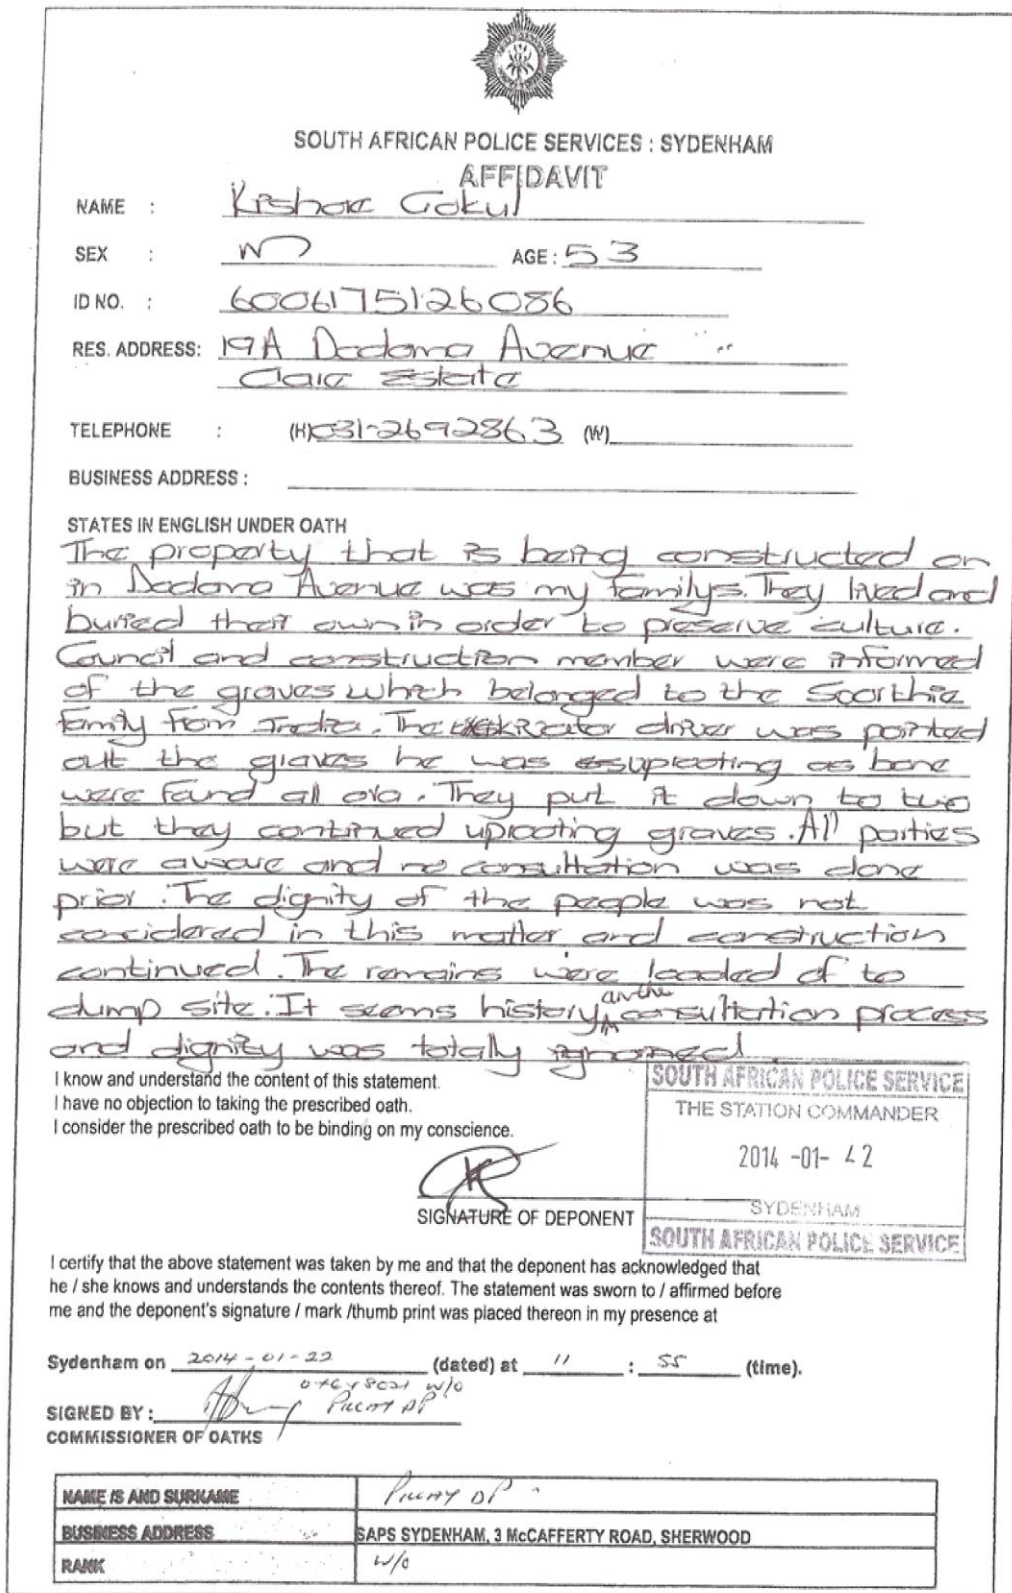 SOUTH AFRICAN POLICE SERVICES : SYDENHAM
AFFIDAVIT
NAME : Kishore Gokul
SEX : M AGE : 53
ID NO. : 6006175126086
RES. ADDRESS: 19A Dodoma Avenue
Clare Estate
TELEPHONE : (H)031-2692863 (W)
BUSINESS ADDRESS :
STATES IN ENGLISH UNDER OATH
The property that is being constructed on
in Dodoma Avenue was my familys. They lived and
buried their own in order to preserve culture.
Council and construction member were informed
of the graves which belonged to the Soorthie
family from India. The driver was pointed
out the graves he was uprooting as bone
were found all ova. They put it down to two
but they continued uprooting graves. All parties
were aware and no consultation was done
prior. The dignity of the people was not
concidered in this matter and construction
continued. The remains were loaded of to
dump site. It seems history, consultation process
and dignity was totally ignored.
I know and understand the content of this statement.
I have no objection to taking the prescribed oath.
I consider the prescribed oath to be binding on my conscience.
SOUTH AFRICAN POLICE SERVICE
THE STATION COMMANDER
2014 -01-
SYDENHAM
SOUTH AFRICAN POLICE SERVICE
SIGNATURE OF DEPONENT
I certify that the above statement was taken by me and that the deponent has acknowledged that
he / she knows and understands the contents thereof. The statement was sworn to / affirmed before
me and the deponent's signature / mark /thumb print was placed thereon in my presence at
Sydenham on 2014-01-22 (dated) at 11 : 55 (time).
W/O
SIGNED BY : Pillay DP
COMMISSIONER OF OATHS
NAME IS AND SURNAME Pillay DP
BUSINESS ADDRESS SAPS SYDENHAM, 3 McCAFFERTY ROAD, SHERWOOD
RANK W/O